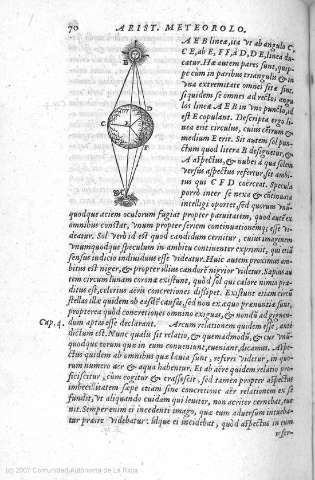 70 ARIST. METEOROLO.
A E B linea, ita vt ab angulo C,
C E, ab E, F F A, D, D E, linea du-
catur. Hæ autem pares sunt, quip-
pe cùm in paribus triangulis & in
vna extremitate omnes sitæ sint.
siquidem se omnes ad rectos angu-
los lineæ A E B in vno puncto, id
est E copulant. Descripta ergo li-
nea erit circulus, cuius cẽtrum &
medium E erit. Sit autem sol pun-
ctum quod litera B designetur, &
A aspectus, & nubes à qua solem
versus aspectus refertur sit ambi-
tus qui C F D coërceat. Specula
porrò inter se nexa & continua
intelligi oportet, sed quorum vnũ-
quodque aciem oculorum fugiat propter paruitatem, quod autẽ ex
omnibus constat, vnum propter seriem continuationemque esse vi-
deatur. Sol verò id est quod candidum cernitur, cuius imaginem
vnumquodque speculum in ambitu continenter exprimit, qui etiã
sensus iudicio indiuiduus esse videatur. Huic autem proximus am-
bitus est niger, & propter illius candorẽ nigrior videtur. Sæpius au-
tem circum lunam coronæ existunt, quòd sol qui calore nimio præ-
ditus est, celerius aëris concretiones dissipet. Existunt etiam circũ
stellas
propterea quòd concretiones omnino exiguas, & nondũ ad gignen-
Cap. 4. dum aptas esse declarant. Arcum relationem quidem esse, antè
dictum est. Nunc qualis sit relatio, & quemadmodũ, & cur vnũ-
quodque eorum quæ in eum conueniunt, eueniant, dicamus. Aspe-
ctus quidem ab omnibus quæ læuia sunt, referri videtur, in quo-
rum numero aër & aqua habentur. Et ab aëre quidem relatio pro-
ficiscitur, cùm cogitur & crassescit, sed tamen propter aspectus
imbecillitatem sæpe etiam sine concretione aër relationem ex se
fundit, vt aliquando cuidam qui leuiter, non acriter cernebat, eue-
nit. Semper enim ei incedenti imago, quæ eum aduersum intueba-
tur præire videbatur. Idque ei incidebat, quòd aspectus in eum
refer-
B
D
C
E
F
(c) 2007 Comunidad Autónoma de La Rioja